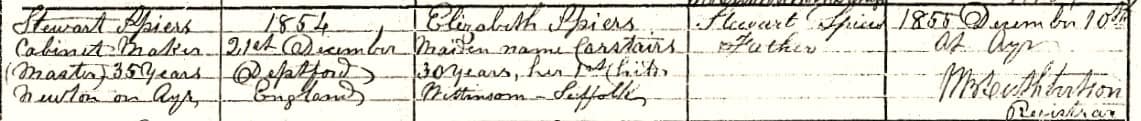 Stewart Spiers 1854 Elizabeth Spiers Stewart Spiers 1855 December 10th
Cabinet Maker 21st December Maiden name Carstairs Father At Ayr
(Master) 35 Years (Deptford) 30 years, her 1st Child
Newton on Ayr, England) Suffolk
Registrar